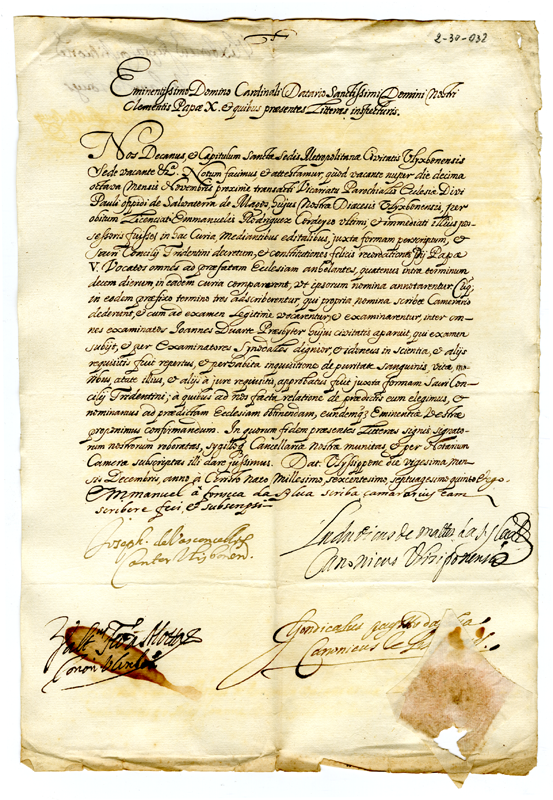 2-30-032
Eminentissimo Domino Cardinali Datario Sanctissimi Domini Nostri
Clementis Papæ X. & quibus præsentes Litteræ inspecturis.
Nos Decanus, & Capitulum Sanctæ Sedis Metropolitanæ Civitatis Ulyxbonensis
Sede vacante &c. Notum facimus & attestamur, quod vacante nuper die decima
octava Mensis Novembris proxime transacti Vicariatu Parochialis Ecclesiæ Divi
Pauli oppidi de Salvaterra de Magos, hujus Nostræ Diæcesis Ulyxbonensis, per
obitum Licenciati Emmanuelis Rodriguez Cordeyro ultimi, & immediati illius pos-
sessoris fuisset in hac Curia, Mediantibus edictalibus, juxta formam præscriptam, &
Sacri Concilij Tridentini decretum, & constitutiones felicis recreationis Pij Papæ
V. Vocatos omnes ad præfatam Ecclesiam anhelantes, quatenus intra terminum
decem dierum in eadem curia comparerent, ut ipsorum nomina annotarentur
in eodem præfixo termino tres adscriberentur, qui propria nomina scribæ Cameræ
dederint, & cum ad examen Legitime vocarentur, & examinarentur, inter om-
nes examinatos Joannes Duarte Presbyter hujus civitatis aparuit, qui examen
subijt, & per Examinatores Synodales dignior, & idoneus in scientia, & alijs
requisitis fuit repertus, & perhabita inquisitione de puritate sanguinis, vita, mo-
ribus, ætate illius, & alijs à jure requisitis, approbatus fuit juxta formam Sacri Con-
cilij Tridentini; à quibus ad nos facta relatione de prædictis eum elegimus, &
nominamus ad prædictam Ecclesiam obtinendam, eundemq; Eminentiæ Vestræ
proponimus confirmandum. In quorum fidem præsentes Litteras signis signato-
rum nostrorum roboratas, sygillo Cancellariæ Nostræ munitas, & per Notarium
Cameræ subscriptas illi dare jussimus. Dat. Ulyssipone die vigesima men-
sis Decembris, anno à Christo Nato Millesimo, sexcentesimo, septuagesimo quinto & ego
Emmanuel à da Silva scriba camararius eam
scribere feci, & subscripsi
Joseph de Vasconcellos
Cantor Ulysbonen.
Ludovicus de Mattos da
Canonicus
Motta
Canon.
Gondisalus
Canonicus